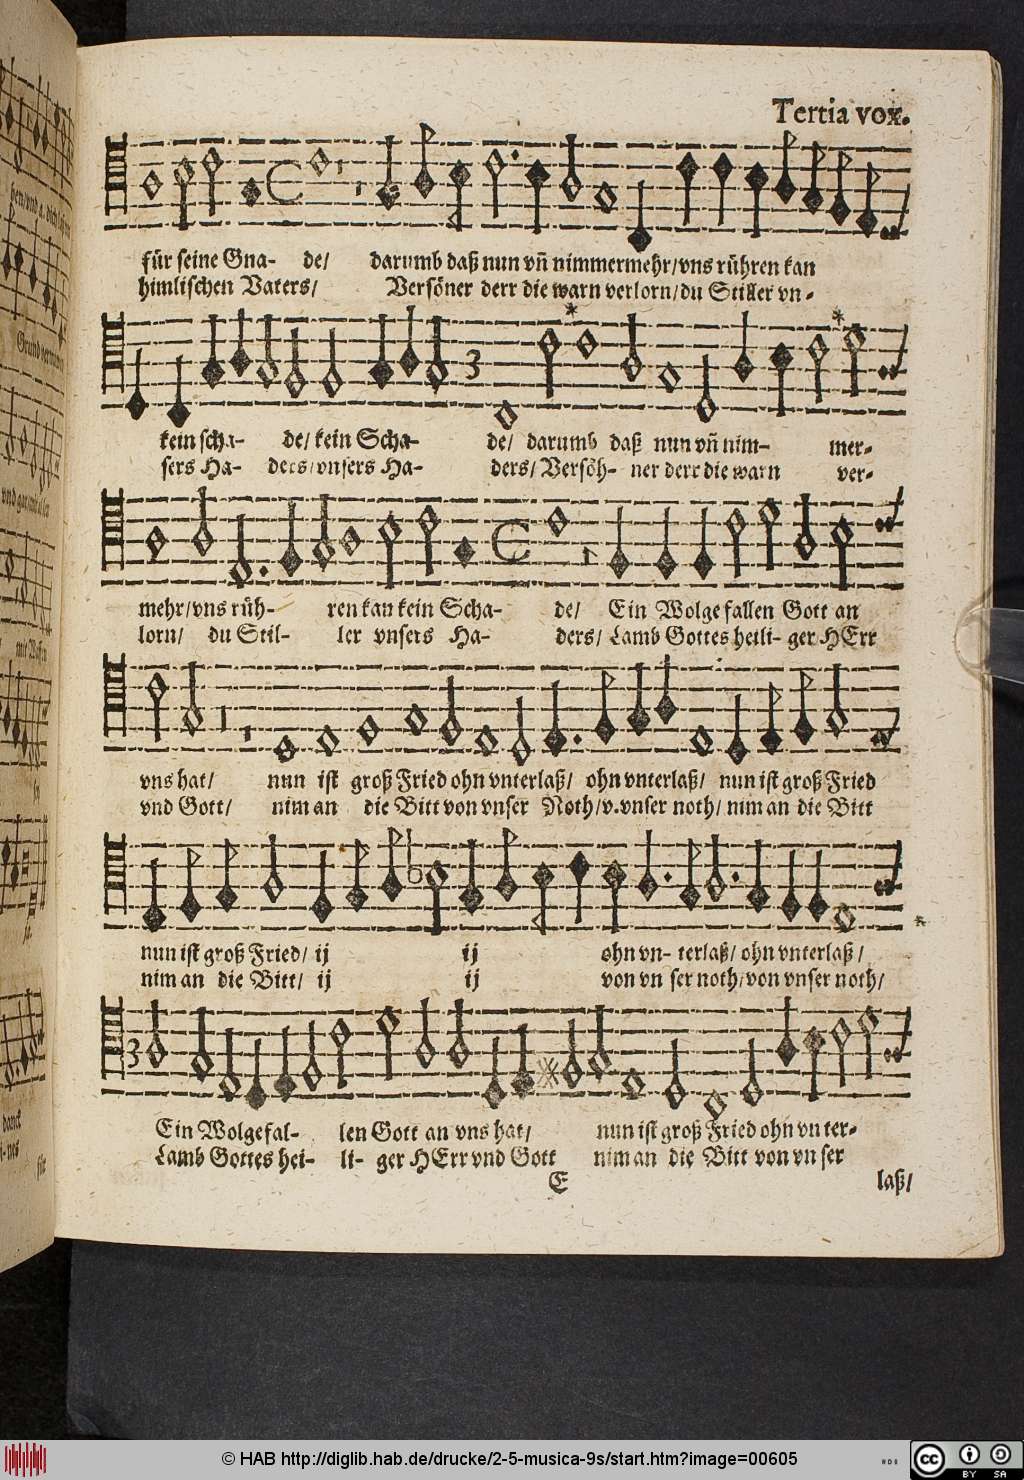 Tertia vox.
für seine Gna- de/ darumb daß nun vñ nimmermehr/vns rühren kan
himlischen Vaters/ Versöner derr die warn verlorn/du Stiller vn-
3
kein scha- de/ kein Scha- de/ darumb daß nun vñ nim- mer-
sers Ha- ders/vnsers Ha- ders/ Versöh- ner derr die warn ver-
mehr/vns rüh- ren kan kein Scha- de/ Ein Wolgefallen Gott an
lorn/ du Stil- ler vnsers Ha- ders/ Lamb Gottes heili- ger HErr
vns hat/ nun ist groß Fried ohn vnterlaß/ ohn vnterlaß/ nun ist groß Fried
vnd Gott/ nim an die Bitt von vnser Noth/v.vnser noth/ nim an die Bitt
nun ist groß Fried/ ij ij ohn vn- terlaß/ ohn vnterlaß/
nim an die Bitt/ ij ij von vn ser noth/von vnser noth/
3
Ein Wolgefal- len Gott an vns hat/ nun ist groß Fried ohn vn ter-
Lamb Gottes hei- li- ger HErr vnd Gott nim an die Bitt von vn ser
E laß/
© HAB http://diglib.hab.de/drucke/2-5-musica-9s/start.htm?image=00605
cc BY SA